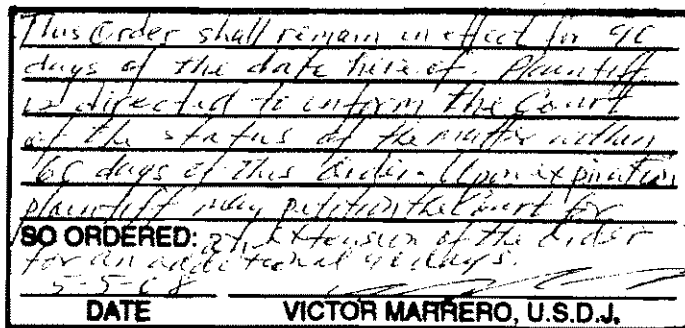 This Order shall remain in effect for 90
days of the date hereof. Plaintiff
is directed to inform the Court
of the status of the matter within
60 days of this Order. Upon expiration
plaintiff may petition the Court for
SO ORDERED: an extension of the Order
for an additional 90 days.
5-5-08
DATE VICTOR MARRERO, U.S.D.J.